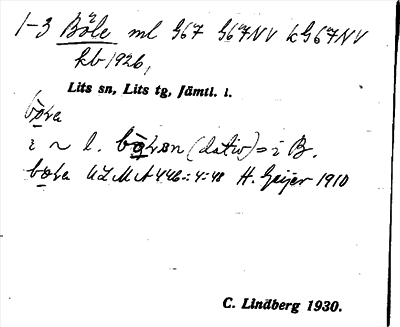 1-3 Böle ml G67 G67NV kG67NV
kb 1926,
Lits sn, Lits tg, Jämtl. l.
bo̲ra
i ~ l. bo̲ren (dativ) = i B.
bo̲ra ULMA 446:4:48 H. Geijer 1910
C. Lindberg 1930.